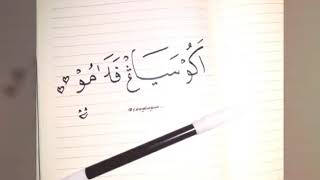 اَكُوْ سَيَاڠْ فَدَامُوْ